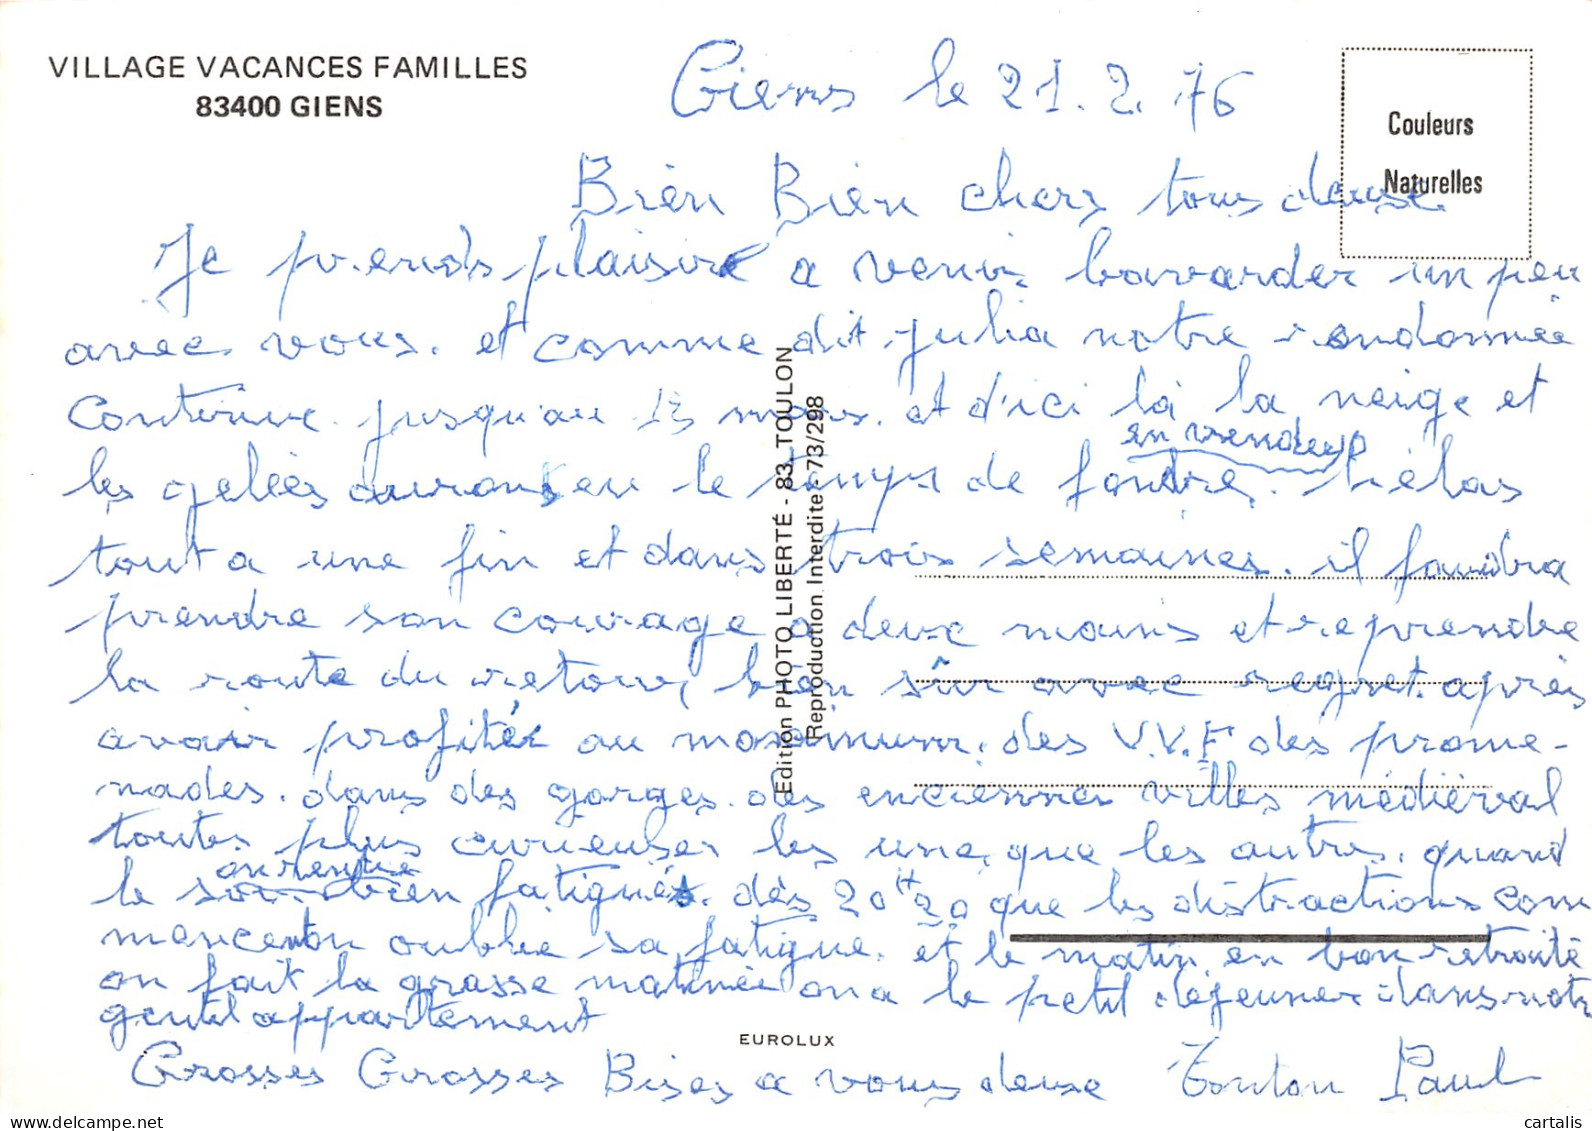 VILLAGE VACANCES FAMILLES
83400 GIENS
Couleurs
Naturelles
Giens le 21.2.76
Bien Bien chers tous deuse
Je prends plaisir a venir bavarder un peu
avec vous. et comme dit julia notre randonnée
Continue jusqu'au 13 mars. et d'ici là la neige et
en vrendeup
les gelées aurons eu le temps de fondre. hélas
tout a une fin et dans trois semaines. il faudra
prendre son courage a deux mains et reprendre
la route du retour, bien sûr avec regret. après
avoir profiter au maximum. des V.V.F des prome-
nades. dans des gorges. des enciennes villes médiéval
toutes plus curieuses les une, que les autres. quand
on rentre
le soir bien fatigués. dès 20H20 que les distractions com
mencent on oublie sa fatigue. et le matin en bon retraité
on fait la grasse matinée on a le petit dejeuner dans notr
gentil appartement
Grosses Grosses Bises a vous deuse Tonton Paul
Edition PHOTO LIBERTÉ - 83. TOULON
Reproduction Interdite - 73/298
EUROLUX
www.delcampe.net
cartalis